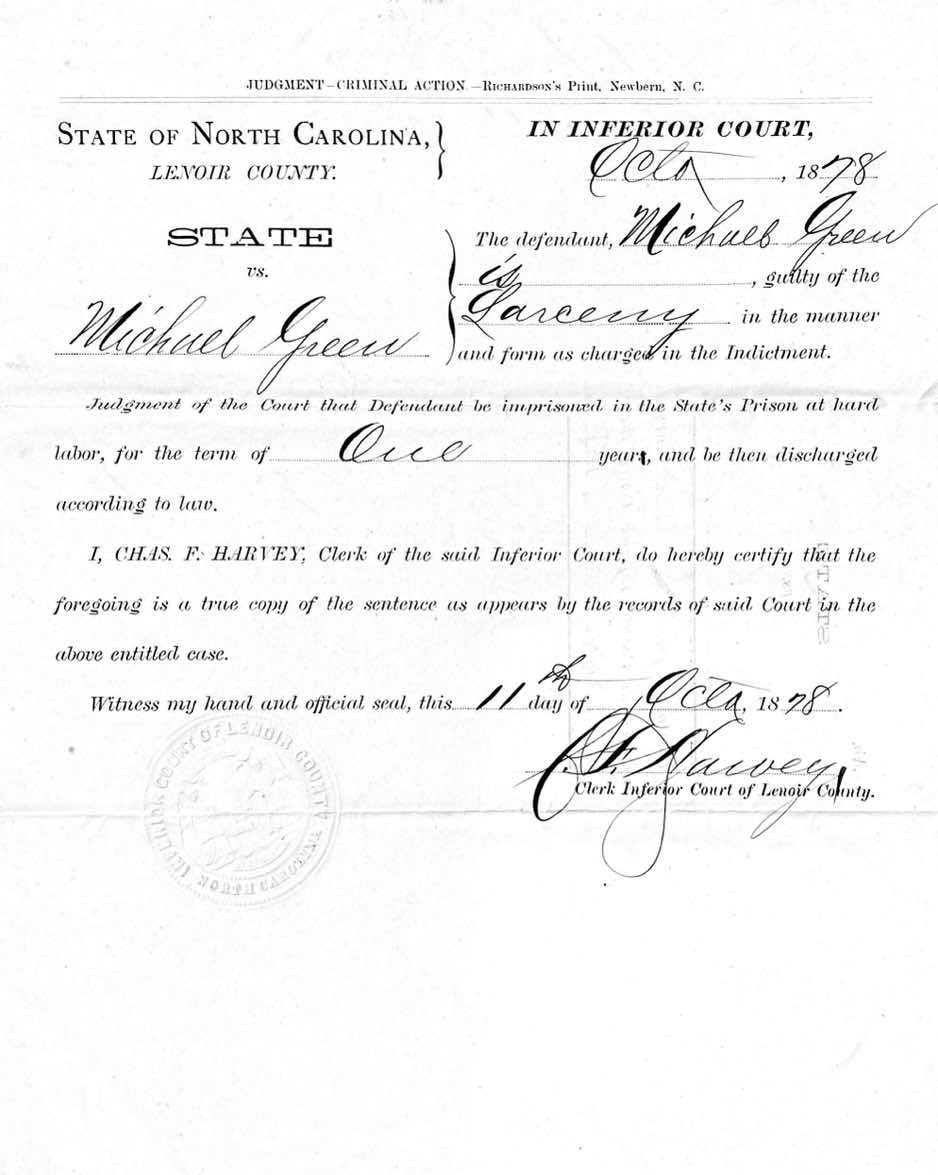 JUDGMENT—CRIMINAL ACTION.—RICHARDSON'S Print, Newbern, N. C.
STATE OF NORTH CAROLINA,
LENOIR COUNTY.
IN INFERIOR COURT,
Octo, 1878
STATE
vs.
Michael Green
The defendant, Michael Green
is, guilty of the
Larceny in the manner
and form as charged in the Indictment.
Judgment of the Court that Defendant be imprisoned in the State's Prison at hard
labor, for the term of One year, and be then discharged
according to law.
I, CHAS. F. HARVEY, Clerk of the said Inferior Court, do hereby certify that the
foregoing is a true copy of the sentence as appears by the records of said Court in the
above entitled case.
Witness my hand and official seal, this 11th day of Octo, 1878.
C. F. Harvey
Clerk Inferior Court of Lenoir County.
INFERIOR COURT OF LENOIR COUNTY NORTH CAROLINA